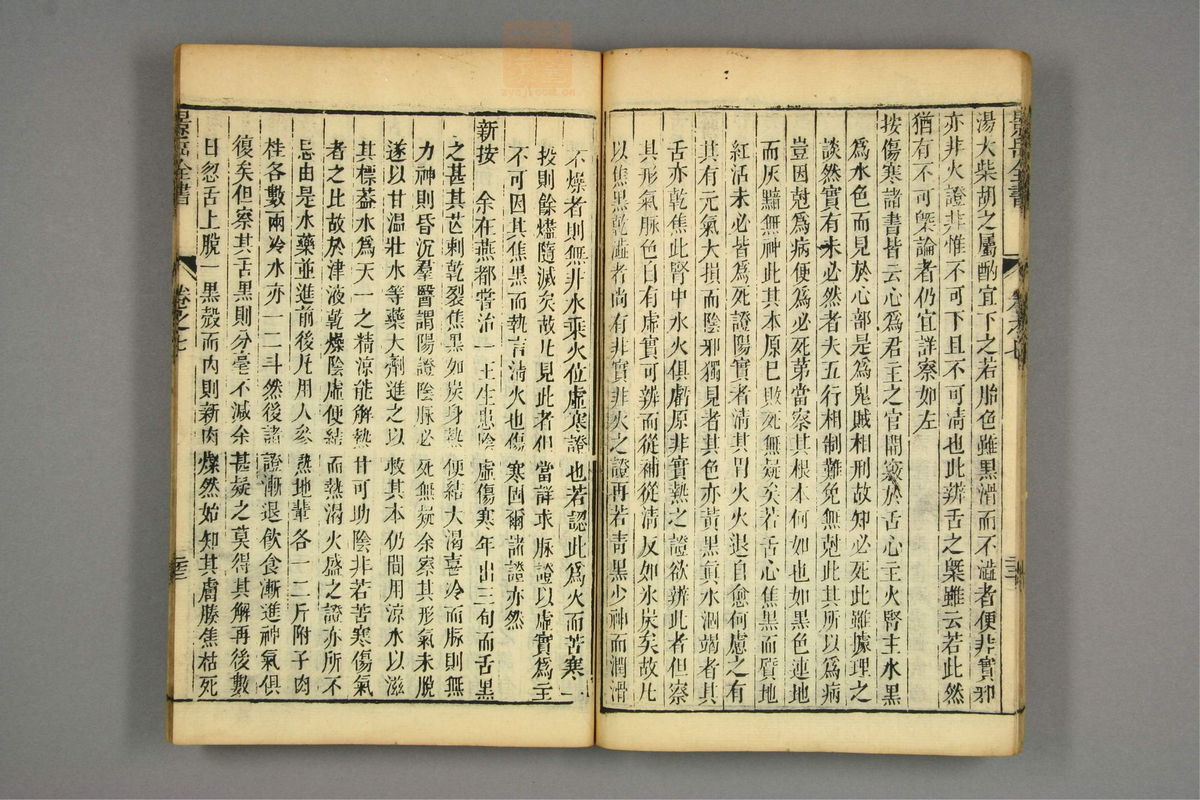 湯大柴胡之屬酌宜下之若胎色雖黑滑而不澁者便非實邪
亦非火證非惟不可下且不可清也此辨舌之槩雖云若此然
猶有不可槩論者仍宜詳察如左
按傷寒諸書皆云心爲君主之官開竅於舌心主火腎主水黑
爲水色而見於心部是爲鬼賊相刑故知必死此雖據理之
談然實有未必然者夫五行相制難免無尅此其所以爲病
豈因尅爲病便爲必死第當察其根本何如也如黑色連地
而灰黯無神此其本原已敗死無疑矣若舌心焦黑而質地
紅活未必皆爲死證陽實者清其胃火火退自愈何慮之有
其有元氣大損而陰邪獨見者其色亦黃黑真水涸竭者其
舌亦乾焦此腎中水火俱虧原非實熱之證欲辨此者但察
其形氣脉色自有虛實可辨而從補從清反如氷炭矣故凡
以焦黑乾澁者尚有非實非火之證再若青黑少神而潤滑
不燥者則無非水乘火位虛寒證也若認此爲火而苦寒一
投則餘燼隨滅矣故凡見此者但當詳求脉證以虛實爲主
不可因其焦黑而執言清火也傷寒固爾諸證亦然
新按 余在燕都嘗治一王生患陰虛傷寒年出三旬而舌黑
之甚其芒刺乾裂焦黑如炭身熱便結大渴喜冷而脉則無
力神則昏沉羣醫謂陽證陰脉必死無疑余察其形氣未脫
遂以甘溫壯水等藥大劑進之以救其本仍間用涼水以滋
其標葢水爲天一之精涼能解熱甘可助陰非若苦寒傷氣
者之比故於津液乾燥陰虛便結而熱渴火盛之證亦所不
忌由是水藥並進前後凡用人參熟地輩各一二斤附子肉
桂各數兩冷水亦一二斗然後諸證漸退飲食漸進神氣俱
復矣但察其舌黑則分毫不減余甚疑之莫得其解再後數
日忽舌上脫一黑殼而內則新肉燦然始知其膚腠焦枯死
景岳全書
卷之七
景岳全書